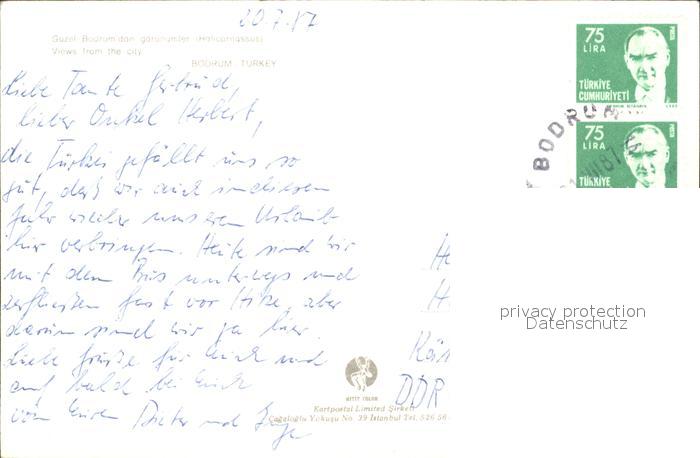 20.7.87
Güzel Bodrum'dan görünümler (Halicarnassus)
Views from the city.
BODRUM - TURKEY
Liebe Tante Gertrud,
lieber Onkel Herbert,
die Türkei gefällt uns so
gut, daß wir auch in diesem
Jahr wieder unseren Urlaub
hier verbringen. Heute sind wir
mit dem Bus unterwegs und
zerfließen fast vor Hitze, aber
darum sind wir ja hier.
Liebe Grüße für Euch und
auf bald bei Euch
von Euren Dieter und Inge
75
LİRA
POSTA
TÜRKİYE
CUMHURİYETİ
75
LİRA
POSTA
TÜRKİYE
BODRUM
87
H
DDR
privacy protection
Datenschutz
Kartpostal Limited Şirketi
Cağaloğlu Yokuşu No. 39 İstanbul Tel. 526 56